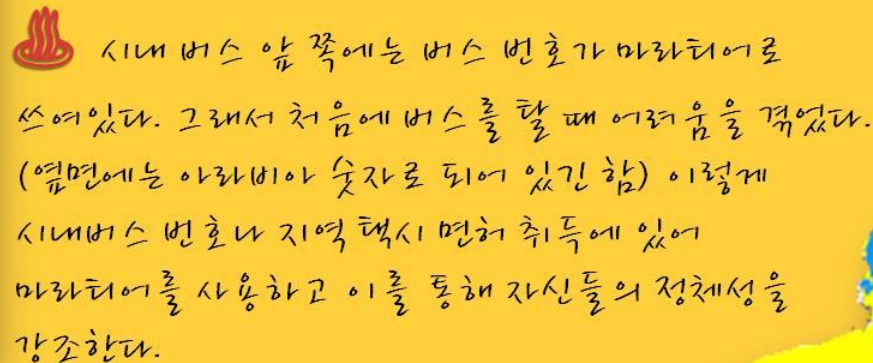 시내 버스 앞 쪽에는 버스 번호가 마라티어로
쓰여있다. 그래서 처음에 버스를 탈 때 어려움을 겪었다.
(옆면에는 아라비아 숫자로 되어 있긴 함) 이렇게
시내버스 번호나 지역 택시 면허 취득에 있어
마라티어를 사용하고 이를 통해 자신들의 정체성을
강조한다.